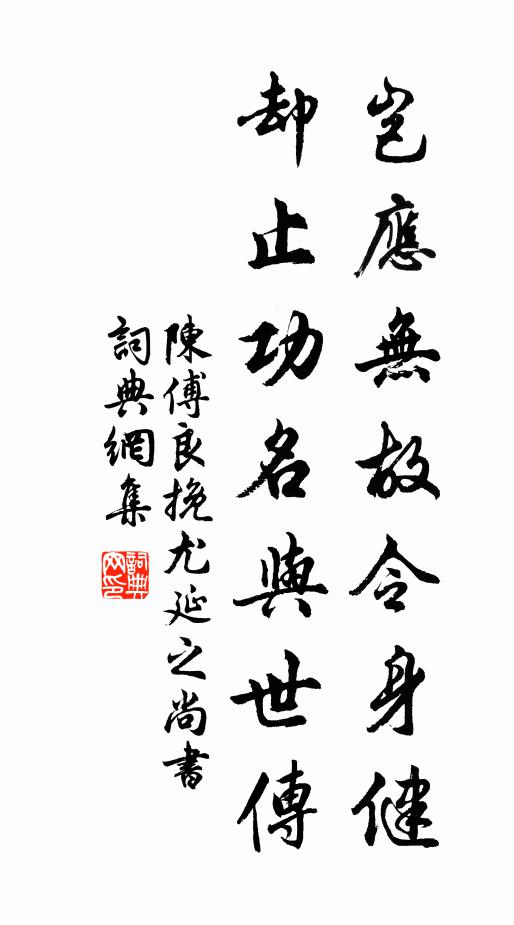 豈應無故令身健
却止功名與世傳
陳傅良挽尤延之尚書
詞典網集
詞典網印